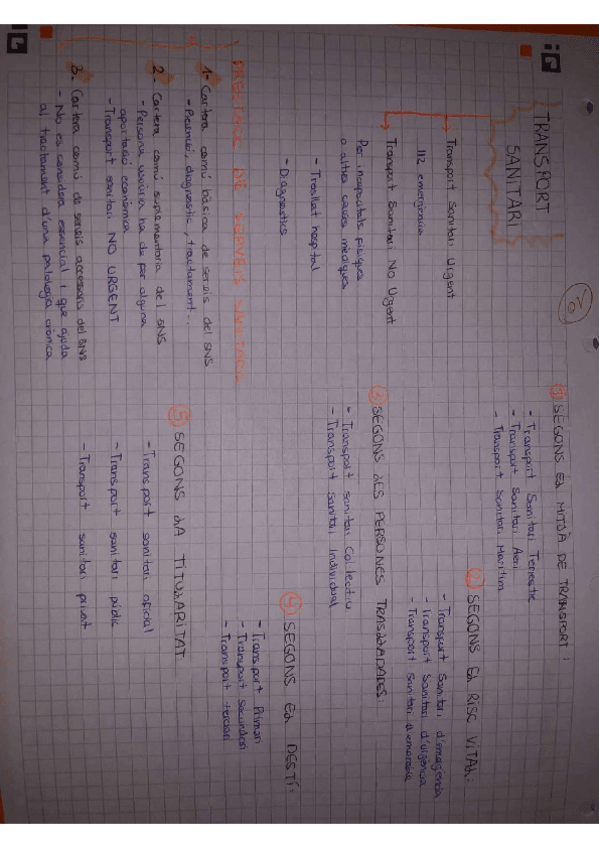 iQ
TRANSPORT
SANITARI
Transport Sanitari Urgent
112 emergència
Transport Sanitari NO Urgent
Per incapacitats físiques
o altres causes mèdiques
- Trasllat hospital
- Diagnostics
1- Cartera comú bàsica de serveis del SNS
2- Cartera comú suplementaria del SNS
- Persona usuària ha de fer alguna
aportació econòmica
- Transport sanitari NO URGENT
3- Cartera comú de serveis accesoris del SNS
- No es considera essencial i que ajuda
al tractament d'una patologia crònica
① SEGONS EL MITJÀ DE TRANSPORT:
- Transport Sanitari Terrestre
- Transport Sanitari Aeri
- Transport Sanitari Marítim
② SEGONS EL RISC VITAL:
- Transport Sanitari d'emergència
- Transport sanitari d'urgència
- Transport sanitari
③ SEGONS LES PERSONES TRASLLADADES:
- Transport sanitari Col·lectiu
- Transport sanitari Individual
④ SEGONS EL DESTÍ:
- Transport Primari
- Transport secundari
- Transport terciari
⑤ SEGONS LA TITULARITAT
- Transport sanitari oficial
- Transport sanitari públic
- Transport sanitari privat
iQ